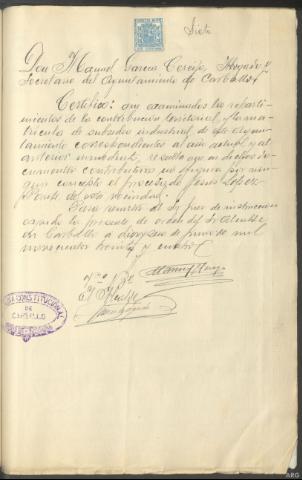 Siete
Don Manuel Garcia Cereijo, Abogado y
Secretario del Ayuntamiento de Carballo
Certifico: que examinados los reparti-
mientos de la contribución territorial, y la ma-
tricula de subsidio industrial de este Ayun-
tamiento correspondientes al año actual y al
anterior inmediato, resulta que en dichos do-
cumentos contributivos no figura por nin-
gun concepto el procesado Jesús López
de esta vecindad.
Para remitir al Sr. Juez de instruccion
expido la presente de orden del Sr. Alcalde
en Carballo a de mil
novecientos treinta y cuatro
Vº Bº
El Alcalde
CONSTITUCIONAL
DE
CARBALLO
ARG